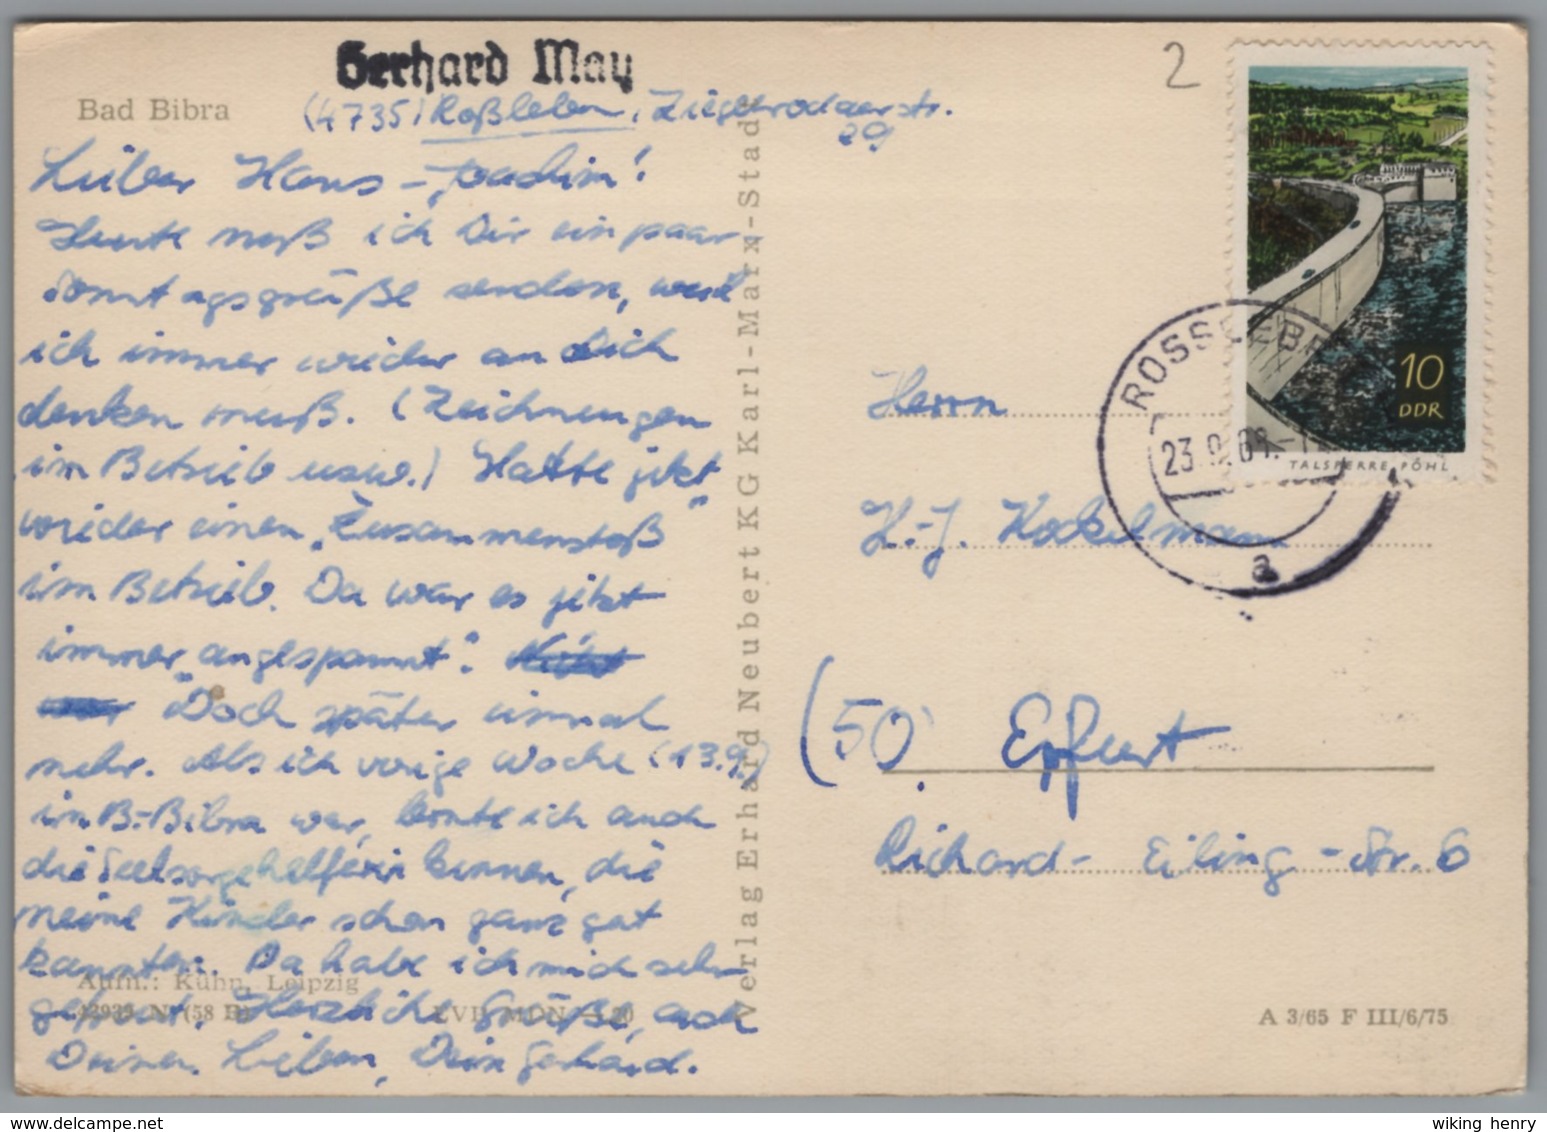 Gerhard May
Bad Bibra
(4735) Roßleben, Ziegelrodaerstr.
29
2
Lieber Hans-Joachim!
Heute muß ich Dir ein paar
Sonntagsgrüße senden, weil
ich immer wieder an Dich
denken muß. (Zeichnungen
im Betrieb usw.) Hatte jetzt
wieder einen „Zusammenstoß"
im Betrieb. Da war es jetzt
immer „angespannt".
Doch später einmal
mehr. Als ich vorige Woche (13.9.)
in B.-Bibra war, konnte ich auch
die Seelsorgehelferin kennen, die
meine Kinder schon ganz gut
kannten. Da habe ich mich sehr
gefreut. Herzliche Grüße, auch
Deinen Lieben, Dein Gerhard.
Aufn.: Kühn, Leipzig
N (58 B) EVP MDN
Verlag Erhard Neubert KG Karl-Marx-Stadt
10
DDR
TALSPERRE PÖHL
ROSSLEBEN
23.9.69.
a
Herrn
H.-J. Kockelmann
(50) Erfurt
Richard-Eiling-Str. 6
A 3/65 F III/6/75
wiking henry